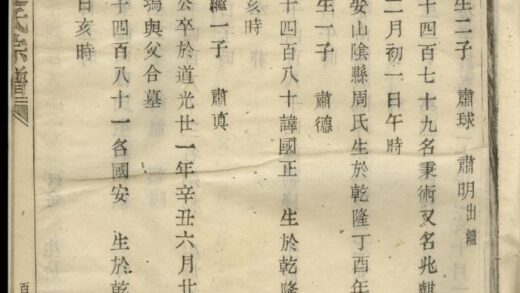 生二子　肅球　肅明出繼
十四百七十九名秉術又名兆麒
二月初一日午時
娶山陰縣周氏生於乾隆丁酉年
生一子　肅德
十四百八十諱國正　生於乾隆
亥時
繼一子　肅真
公卒於道光廿一年辛丑六月廿
與父合墓
十四百八十一名國安　生於乾
日亥時
氏宗譜
百